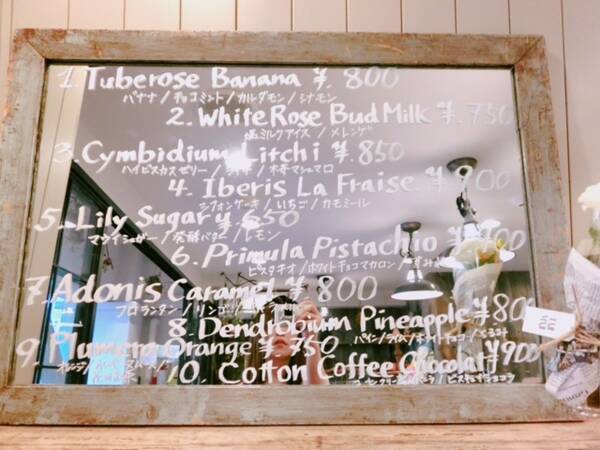 1. Tuberose Banana ¥. 800
バナナ / チョコミント / カルダモン / シナモン
2. White Rose Bud Milk ¥. 750
塩ミルクアイス / メレンゲ
3. Cymbidium Litchi ¥. 850
ハイビスカスゼリー / ライチ / マシュマロ
4. Iberis La Fraise ¥. 900
シフォンケーキ / いちご / カモミール
5. Lily Sugary 650
マウイシュガー / 発酵バター / レモン
6. Primula Pistachio ¥
ピスタチオ / ホワイトチョコマカロン / すみれ
7. Adonis Caramel ¥ 800
フロランタン / リンゴ /
8. Dendrobium Pineapple ¥ 800
パイン / ライム / ホワイトチョコ / くるみ
9. Plumera Orange ¥. 750
オレンジ /
10. Cotton Coffee Chocolat ¥900